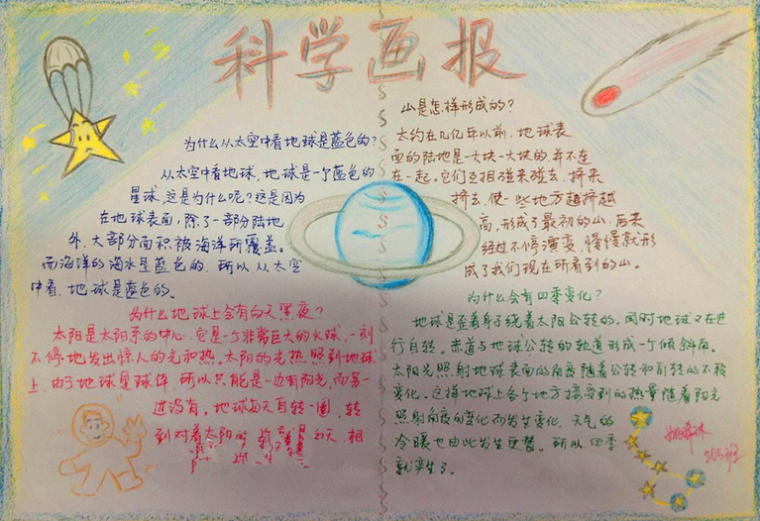 科学画报
为什么从太空中看地球是蓝色的?
从太空中看地球,地球是一个蓝色的
星球,这是为什么呢?这是因为
在地球表面,除了一部分陆地
外,大部分面积被海洋所覆盖。
而海洋的海水是蓝色的,所以,从太空
中看,地球是蓝色的。
为什么地球上会有白天黑夜?
太阳是太阳系的中心,它是一个非常巨大的火球,一刻
不停地发出惊人的光和热。太阳的光热照到地球
上,由于地球是球体,所以只能是一边有阳光,而另一
边没有,地球每天自转一圈,转
到对着太阳的 白天,相
山是怎样形成的?
太约在几亿年以前,地球表
面的陆地是一大块一大块的,并不连
在一起,它们互相碰来碰去,挤来
挤去,使一些地方越挤越
高,形成了最初的山,后来
经过不停演变,慢慢就形
成了我们现在所看到的山。
为什么会有四季变化?
地球是歪着身子绕着太阳公转的。同时地球又在进
行自转。赤道与地球公转的轨道形成一个倾斜角。
太阳光照射地球表面的角度随着公转和自转的不移
变化。这样地球上各个地方接受到的热量随着阳光
照射角度的变化而发生变化,天气的
冷暖也由此发生更替。所以,四季
就产生了。